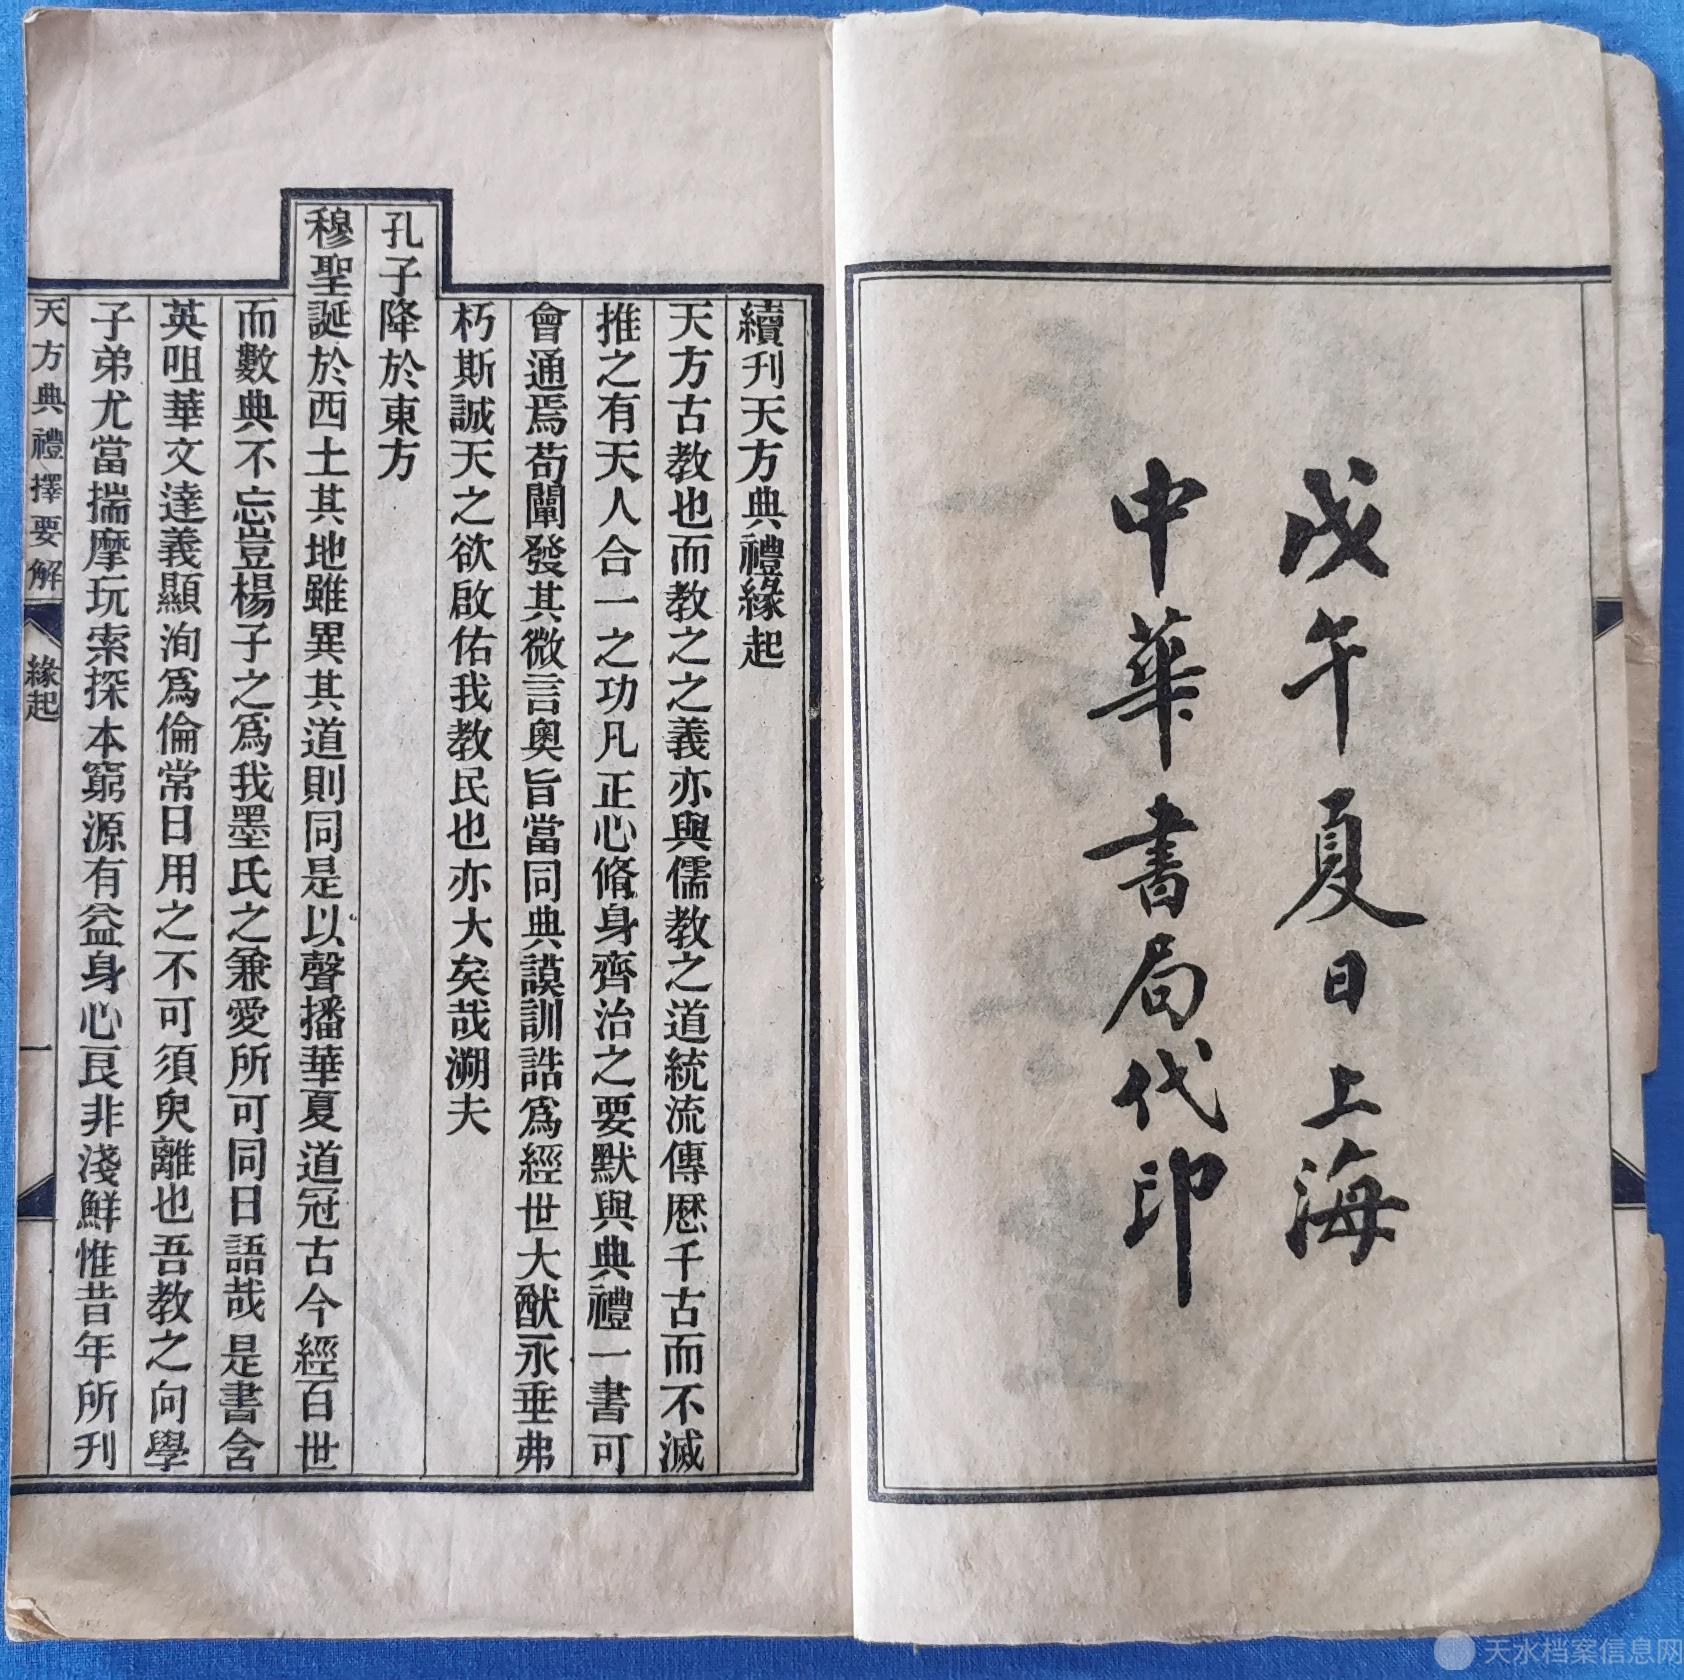 戊午夏日上海
中華書局代印
續刋天方典禮緣起
天方古教也而教之之義亦與儒教之道統流傳歷千古而不滅
推之有天人合一之功凡正心脩身齊治之要默與典禮一書可
會通焉苟闡發其微言奧旨當同典謨訓誥爲經世大猷永垂弗
朽斯誠天之欲啟佑我教民也亦大矣哉溯夫
孔子降於東方
穆聖誕於西土其地雖異其道則同是以聲播華夏道冠古今經百世
而數典不忘豈楊子之爲我墨氏之兼愛所可同日語哉是書含
英咀華文達義顯洵爲倫常日用之不可須臾離也吾教之向學
子弟尤當揣摩玩索探本窮源有益身心良非淺鮮惟昔年所刋
天方典禮擇要解
緣起
一
天水档案信息网